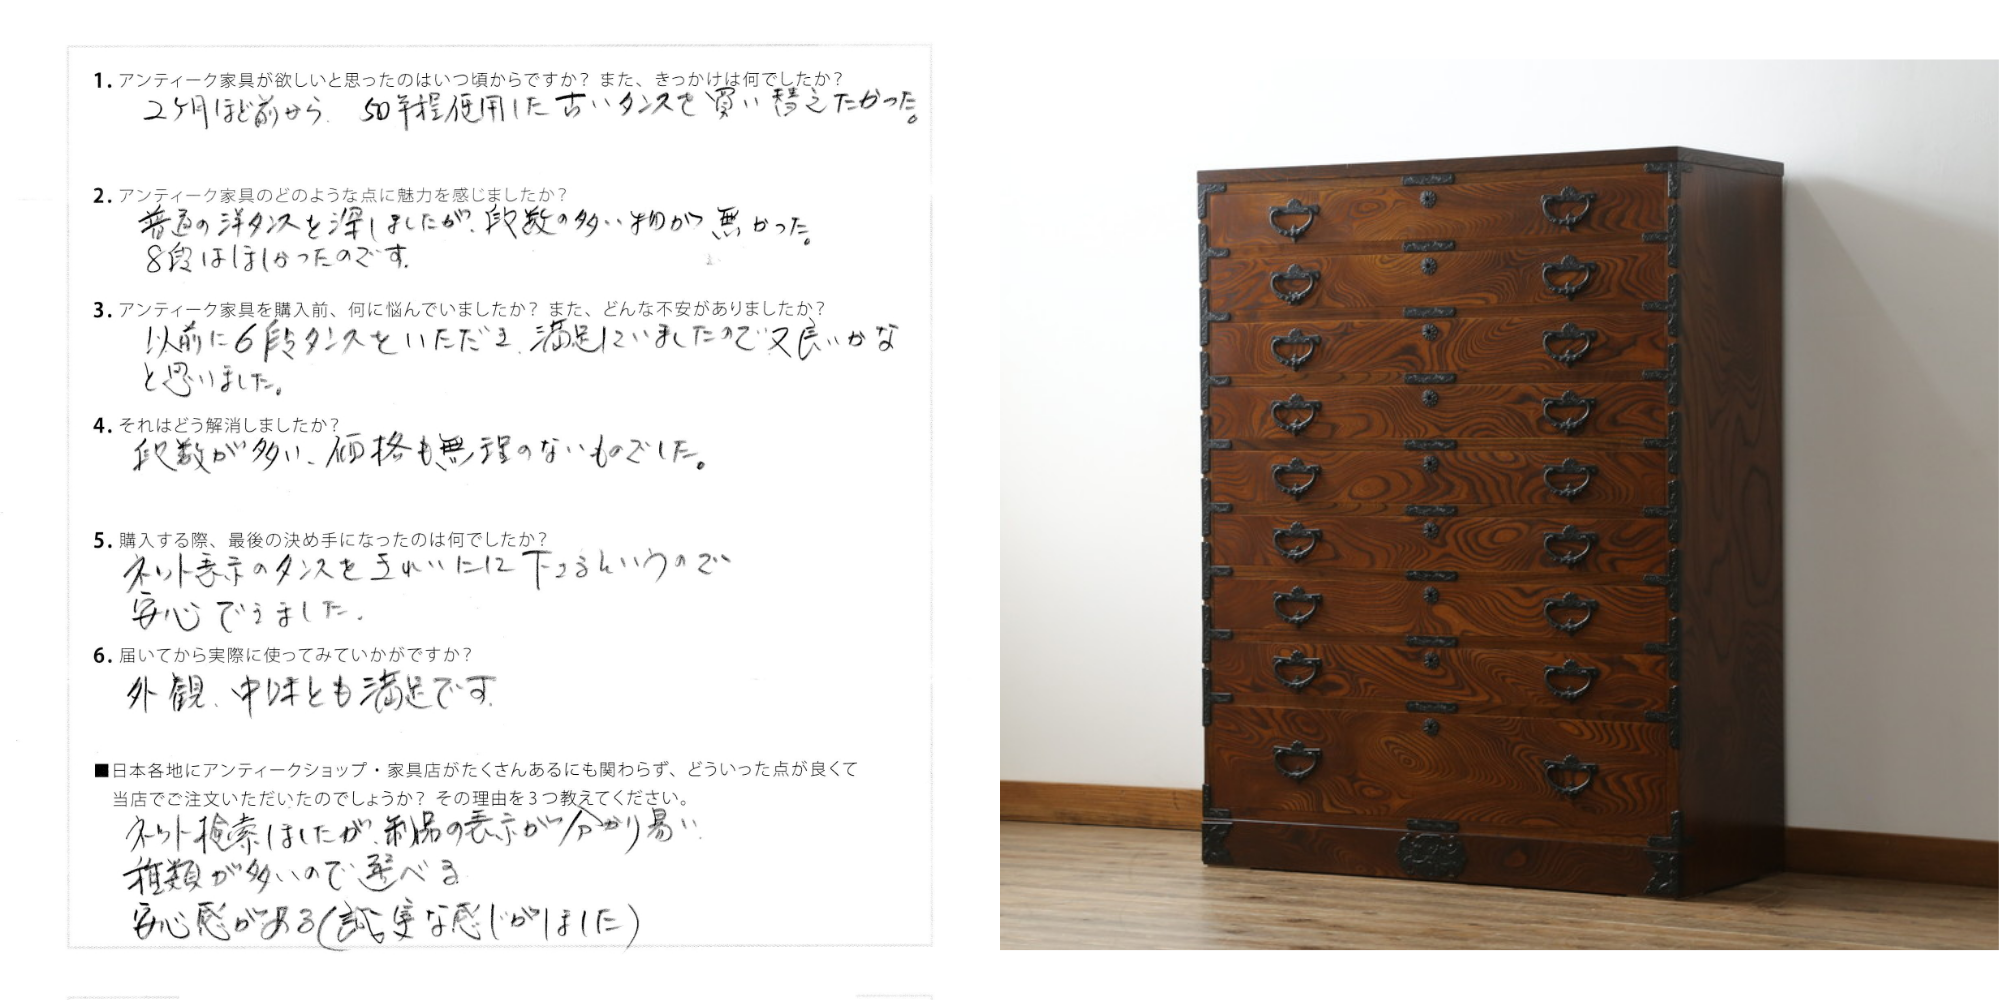 1. アンティーク家具が欲しいと思ったのはいつ頃からですか？ また、きっかけは何でしたか？
2ヶ月ほど前から、50年程使用した古いタンスを買い替えたかった。
2. アンティーク家具のどのような点に魅力を感じましたか？
普通の洋タンスを探しましたが、段数の多い物が無かった。
8段はほしかったのです。
3. アンティーク家具を購入前、何に悩んでいましたか？ また、どんな不安がありましたか？
以前に6段タンスをいただき、満足していましたので又良いかな
と思いました。
4. それはどう解消しましたか？
段数が多い、価格も無理のないものでした。
5. 購入する際、最後の決め手になったのは何でしたか？
ネット表示のタンスをきれいにして下さるというので
安心できました。
6. 届いてから実際に使ってみていかがですか？
外観、中味とも満足です。
■日本各地にアンティークショップ・家具店がたくさんあるにも関わらず、どういった点が良くて
当店でご注文いただいたのでしょうか？ その理由を3つ教えてください。
ネット検索しましたが、製品の表示が分かり易い
種類が多いので選べる
安心感がある(誠実な感じがしました)